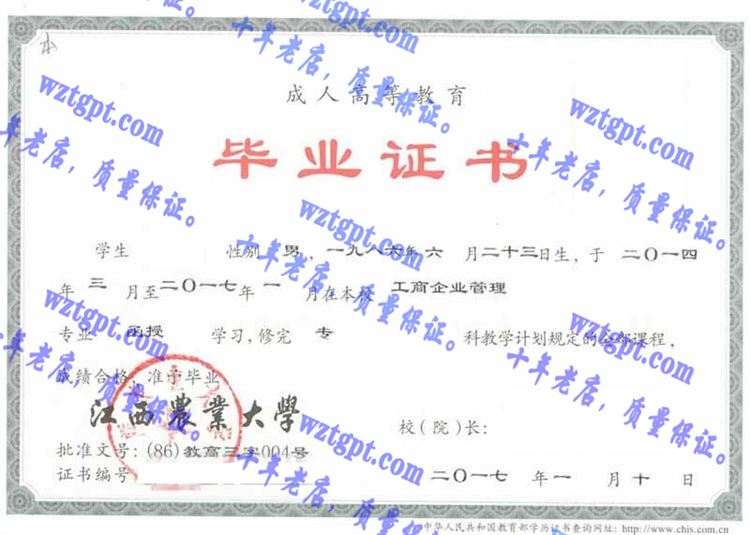 本
成人高等教育
毕业证书
学生 性别 男，一九八六年六 月二十三日生，于 二〇一四
年 三 月至二〇一七年 一 月在本校 工商企业管理
专业 函授 学习，修完 专 科教学计划规定的全部课程，
成绩合格，准予毕业。
江西农业大学
校（院）长：
批准文号：(86)教高三字004号
证书编号
二〇一七 年 一 月 十 日
中华人民共和国教育部学历证书查询网址：http://www.chis.com.cn
wztgpt.com
十年老店，质量保证。
wztgpt.com
十年老店，质量保证。
wztgpt.com
十年老店，质量保证。
wztgpt.com
十年老店，质量保证。
wztgpt.com
十年老店，质量保证。
wztgpt.com
十年老店，质量保证。
wztgpt.com
十年老店，质量保证。